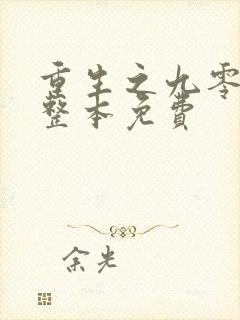 重生之九零
整本免费
余光